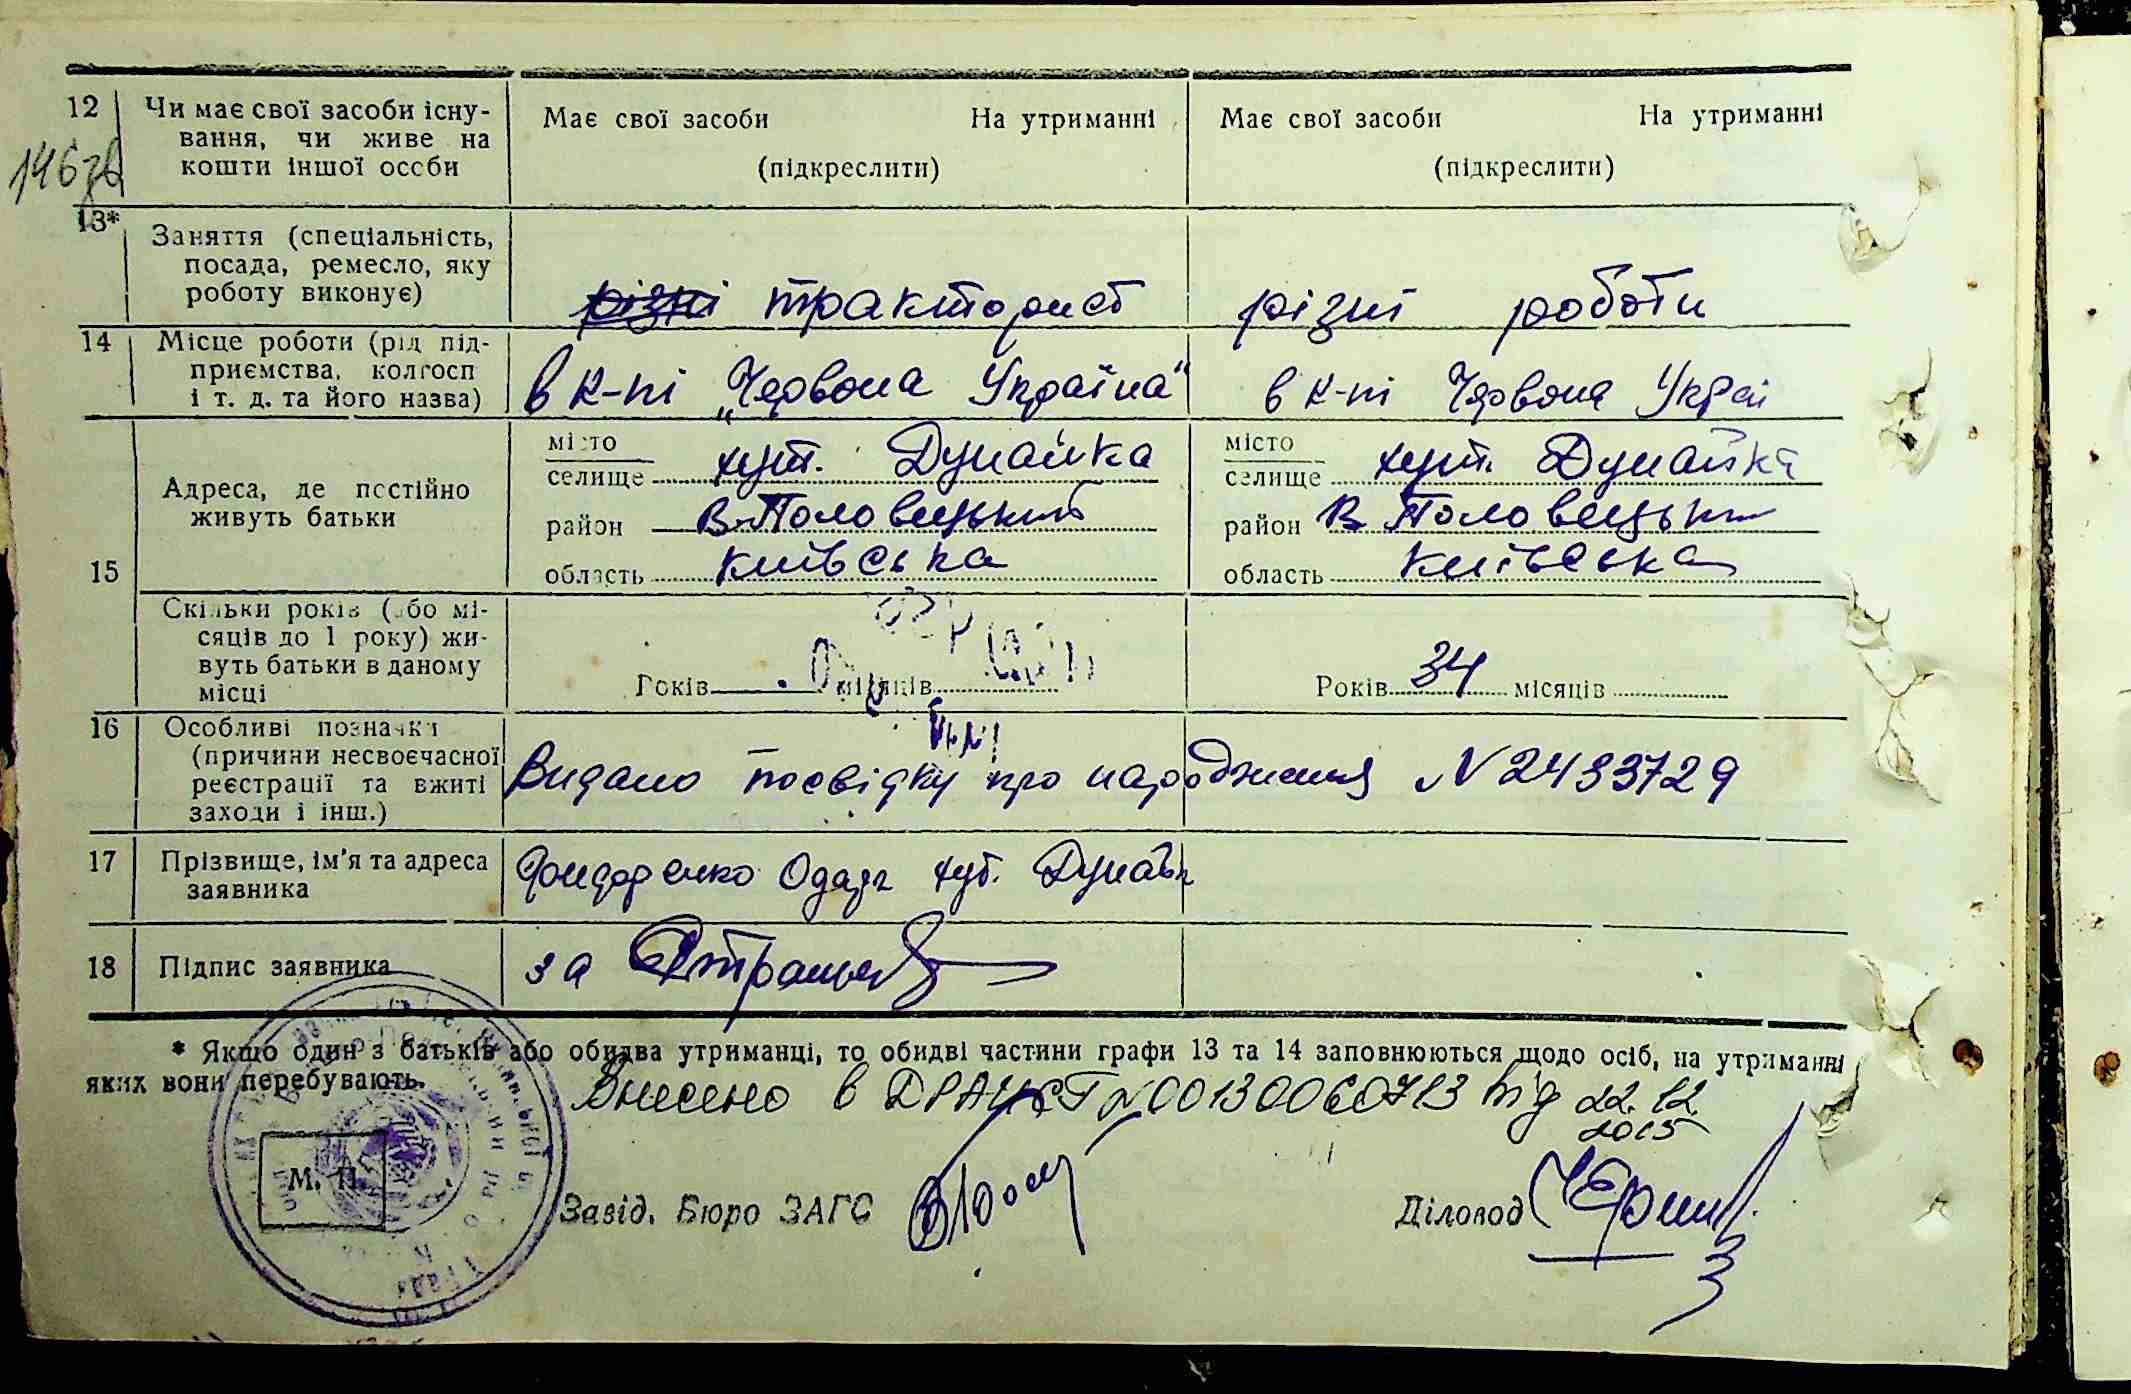 12 Чи має свої засоби існу-
вання, чи живе на
кошти іншої особи
Має свої засоби На утриманні
(підкреслити)
Має свої засоби На утриманні
(підкреслити)
146зв
13* Заняття (спеціальність,
посада, ремесло, яку
роботу виконує)
різні тракторист
різні роботи
14 Місце роботи (рід під-
приємства, колгосп
і т. д. та його назва)
в к-пі „Червона Україна"
в к-пі Червона Украї
15
Адреса, де постійно
живуть батьки
місто
селище хут. Дунайка
район В-Половецький
область Київська
місто
селище хут. Дунайка
район В Половецький
область Київська
Скільки років (або мі-
сяців до 1 року) жи-
вуть батьки в даному
місці
Років місяців
Років 34 місяців
16 Особливі позначки
(причини несвоєчасної
реєстрації та вжиті
заходи і інш.)
Видано посвідку про народження N 2433729
17 Прізвище, ім'я та адреса
заявника
Одарк хут. Дунайк
18 Підпис заявника
за
* Якщо один з батьків або обидва утриманці, то обидві частини графи 13 та 14 заповнюються щодо осіб, на утриманні
яких вони перебувають.
Внесено в ДРАЦСГ N 00130060713 від 22.12.
2015
М. П.
Завід. Бюро ЗАГС
Діловод